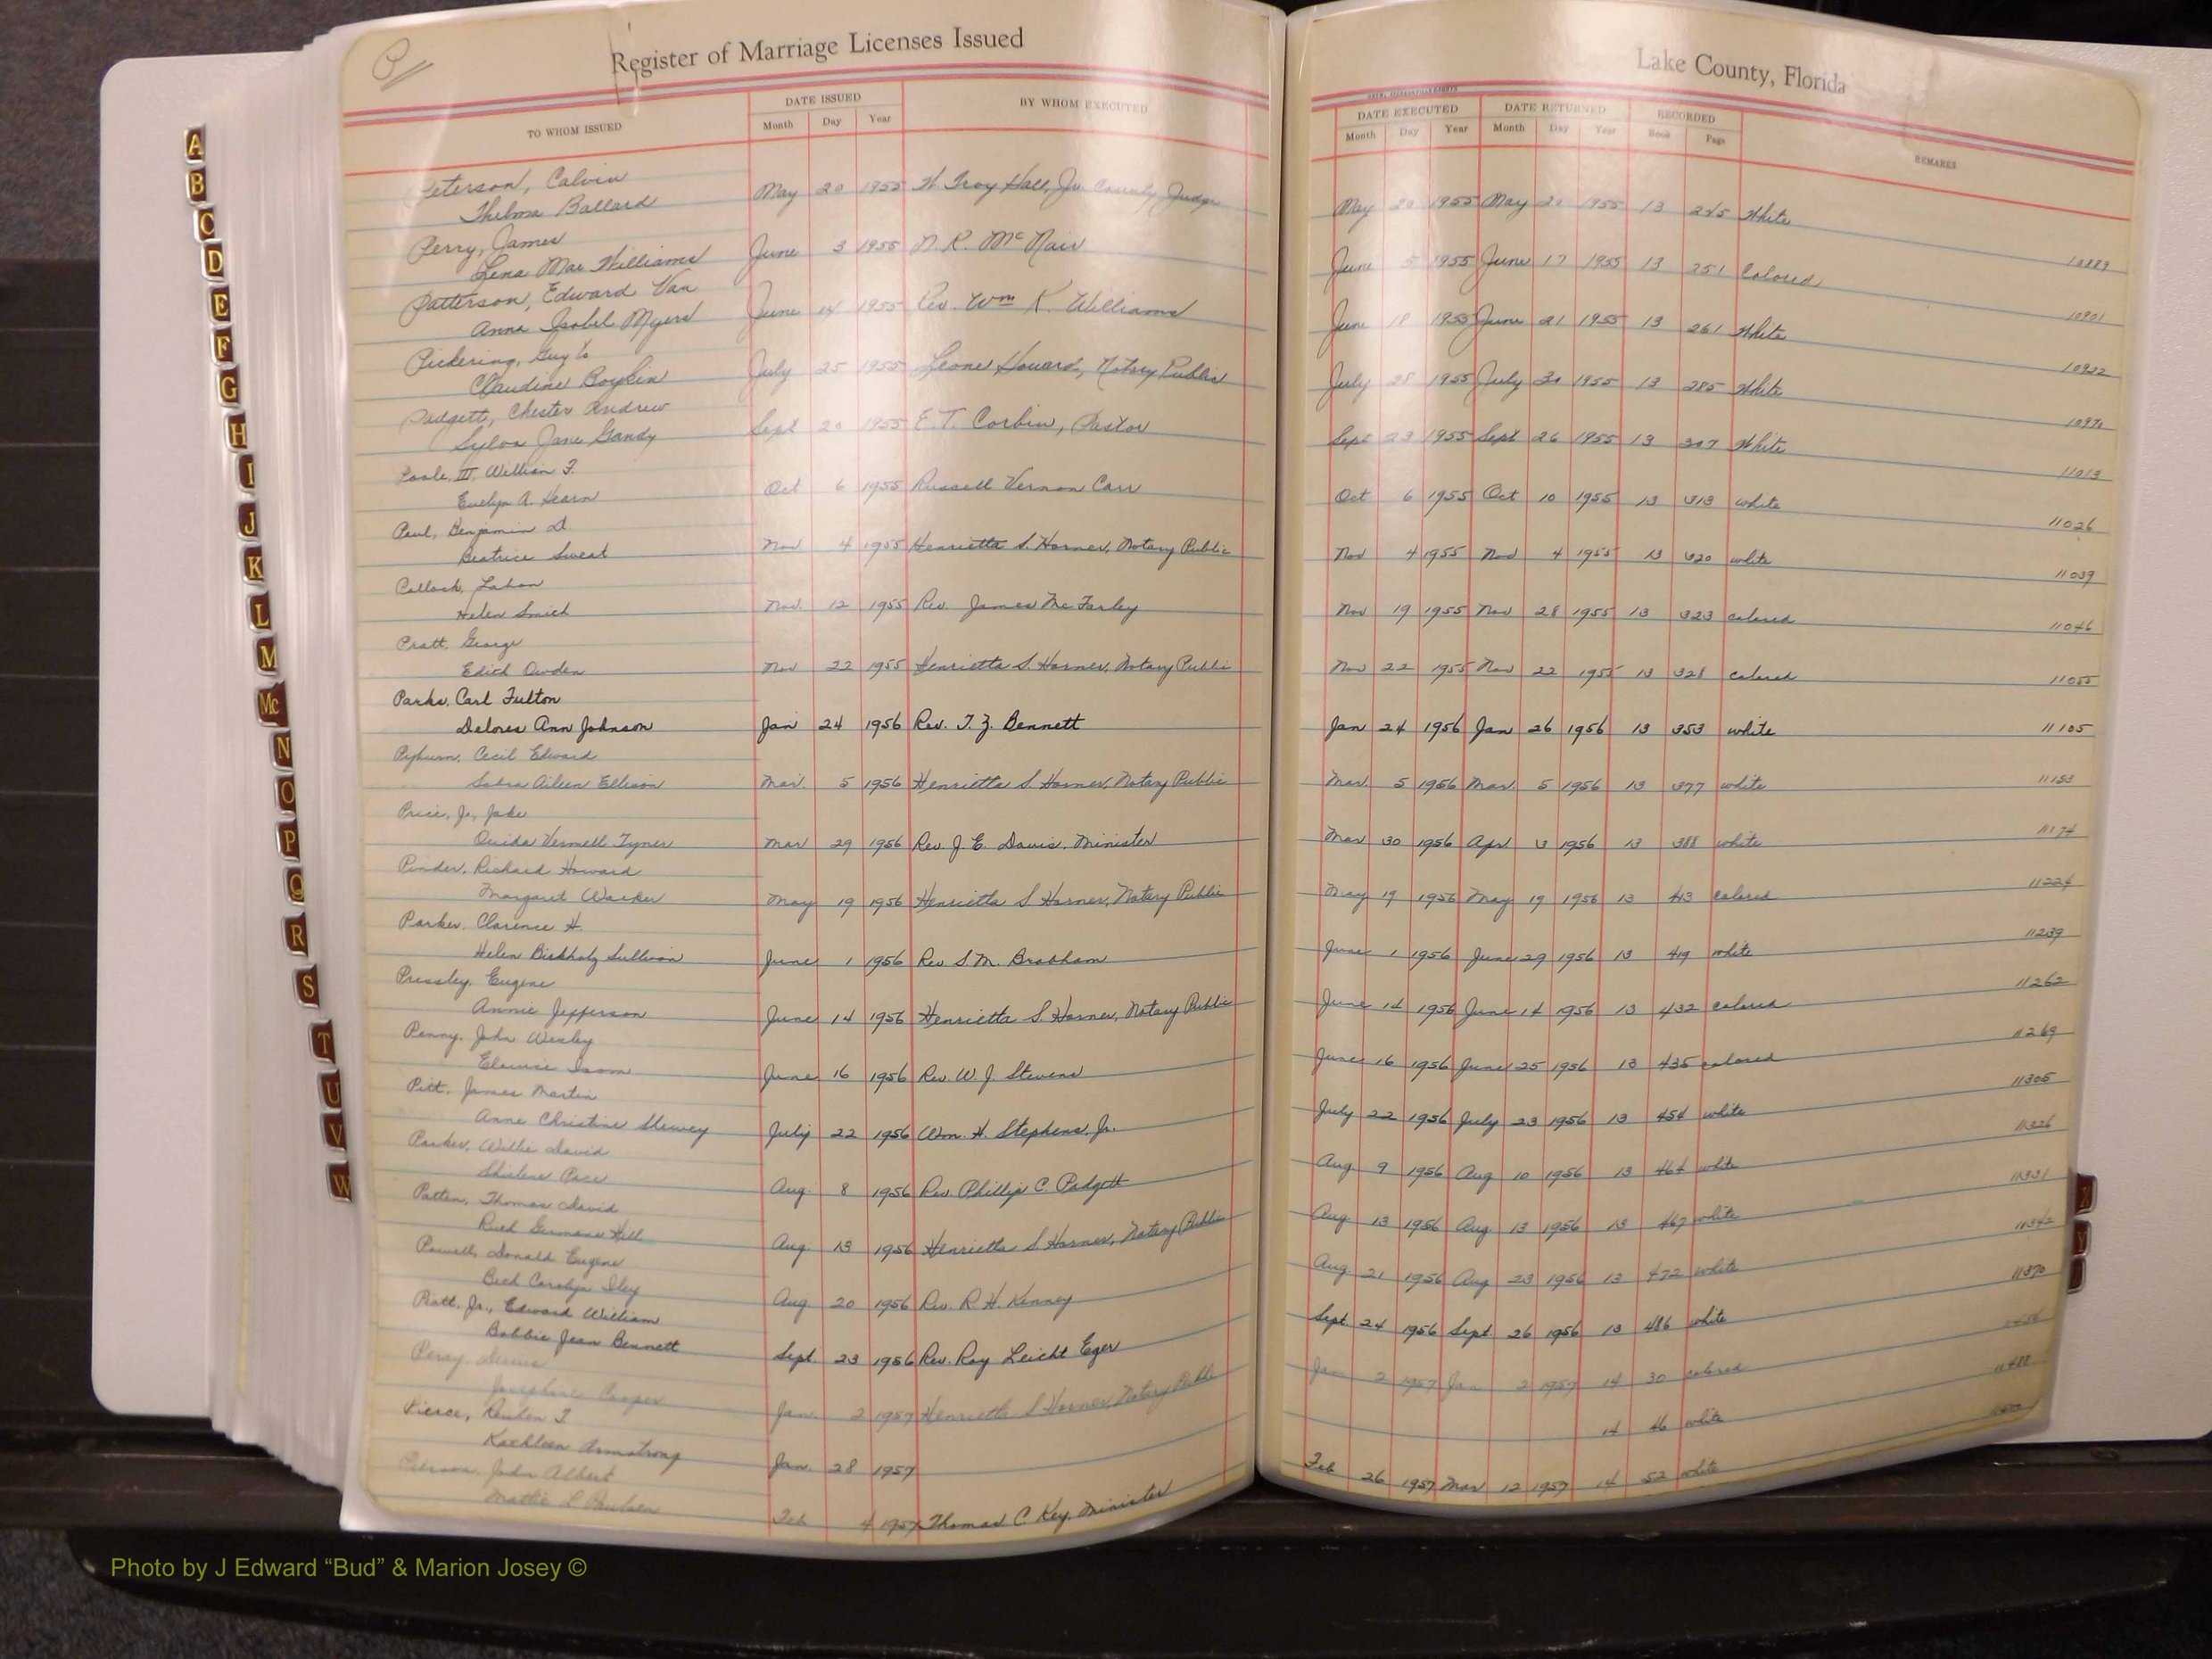 Register of Marriage Licenses Issued
Lake County, Florida
TO WHOM ISSUED
DATE ISSUED
Month Day Year
BY WHOM EXECUTED
DATE EXECUTED
Month Day Year
DATE RETURNED
Month Day Year
RECORDED
Book Page
REMARKS
Peterson, Calvin
Thelma Ballard
May 20 1955 W. Troy Hall, Jr. County Judge
May 20 1955 May 20 1955 13 245 White
10889
Perry, James
Lena Mae Williams
June 3 1955 N. R. McNair
June 5 1955 June 17 1955 13 251 Colored
10901
Patterson, Edward Van
Anna Isobel Myers
June 14 1955 Rev. Wm K. Williams
June 18 1955 June 21 1955 13 261 White
10922
Pickering, Guy
Claudine Boykin
July 25 1955 Leone Howard, Notary Public
July 28 1955 July 30 1955 13 285 White
10970
Padgett, Chester Andrew
Sylva Jane Gandy
Sept 20 1955 E. T. Corbin, Pastor
Sept 23 1955 Sept 26 1955 13 307 White
11013
Poole, III, William F.
Evelyn A. Hearn
Oct 6 1955 Russell Vernon Carr
Oct 6 1955 Oct 10 1955 13 313 white
11026
Paul, Benjamin D.
Beatrice Sweat
Nov. 4 1955 Henrietta S. Horner, Notary Public
Nov 4 1955 Nov 4 1955 13 320 white
11039
Helen Smith
Nov. 12 1955 Rev. James McFarley
Nov 19 1955 Nov 28 1955 13 323 colored
11046
Pratt, George
Edith Owden
Nov 22 1955 Henrietta S. Horner, Notary Public
Nov 22 1955 Nov 22 1955 13 328 colored
11055
Parks, Carl Fulton
Delores Ann Johnson
Jan 24 1956 Rev. T. Z. Bennett
Jan 24 1956 Jan 26 1956 13 353 white
11105
Pyburn, Cecil Edward
Sabra Aileen Ellison
Mar. 5 1956 Henrietta S. Horner, Notary Public
Mar. 5 1956 Mar. 5 1956 13 377 white
11153
Price, Jr., Jake
Ouida Vermell Tyner
Mar 29 1956 Rev. J. E. Davis, Minister
Mar 30 1956 Apr 3 1956 13 388 white
11174
Pinder, Richard Howard
Margaret Walker
May 19 1956 Henrietta S Horner, Notary Public
May 19 1956 May 19 1956 13 413 colored
11224
Parker, Clarence H.
Helen Birkholz Sullivan
June 1 1956 Rev S. M. Brabham
June 1 1956 June 29 1956 13 419 white
11239
Pressley, Eugene
Annie Jefferson
June 14 1956 Henrietta S. Horner, Notary Public
June 14 1956 June 14 1956 13 432 colored
11262
Penny, John Wesley
Elouise Isom
June 16 1956 Rev W. J. Stevens
June 16 1956 June 25 1956 13 435 colored
11269
Pitt, James Martin
Anne Christine
July 22 1956 Wm. H. Stephens, Jr.
July 22 1956 July 23 1956 13 454 white
11305
Parker, Willie David
Shirlene Pace
Aug. 8 1956 Rev. Phillip C. Padgett
Aug 9 1956 Aug 10 1956 13 464 white
11326
Patten, Thomas David
Ruth Germane Hill
Aug. 13 1956 Henrietta S Horner, Notary Public
Aug 13 1956 Aug 13 1956 13 467 white
11331
Powell, Donald Eugene
Beth Carolyn Iley
Aug 20 1956 Rev. R. H. Kenney
Aug 21 1956 Aug 23 1956 13 472 white
11342
Piatt, Jr., Edward William
Bobbie Jean Bennett
Sept. 23 1956 Rev. Roy Leicht Eger
Sept 24 1956 Sept. 26 1956 13 486 white
11370
Perry,
Josephine Cooper
Jan. 2 1957 Henrietta S Horner, Notary Public
Jan 2 1957 Jan 2 1957 14 30 colored
Pierce, Reuben T
Kathleen Armstrong
Jan. 28 1957
14 46 white
11488
Pierson, John Albert
Mattie L Paulsen
Feb 4 1957 Thomas C. Key, Minister
Feb 26 1957 Mar 12 1957 14 52 white
A
B
C
D
E
F
G
H
I
J
K
L
M
Mc
N
O
P
Q
R
S
T
U
V
W
Y
Photo by J Edward “Bud” & Marion Josey ©